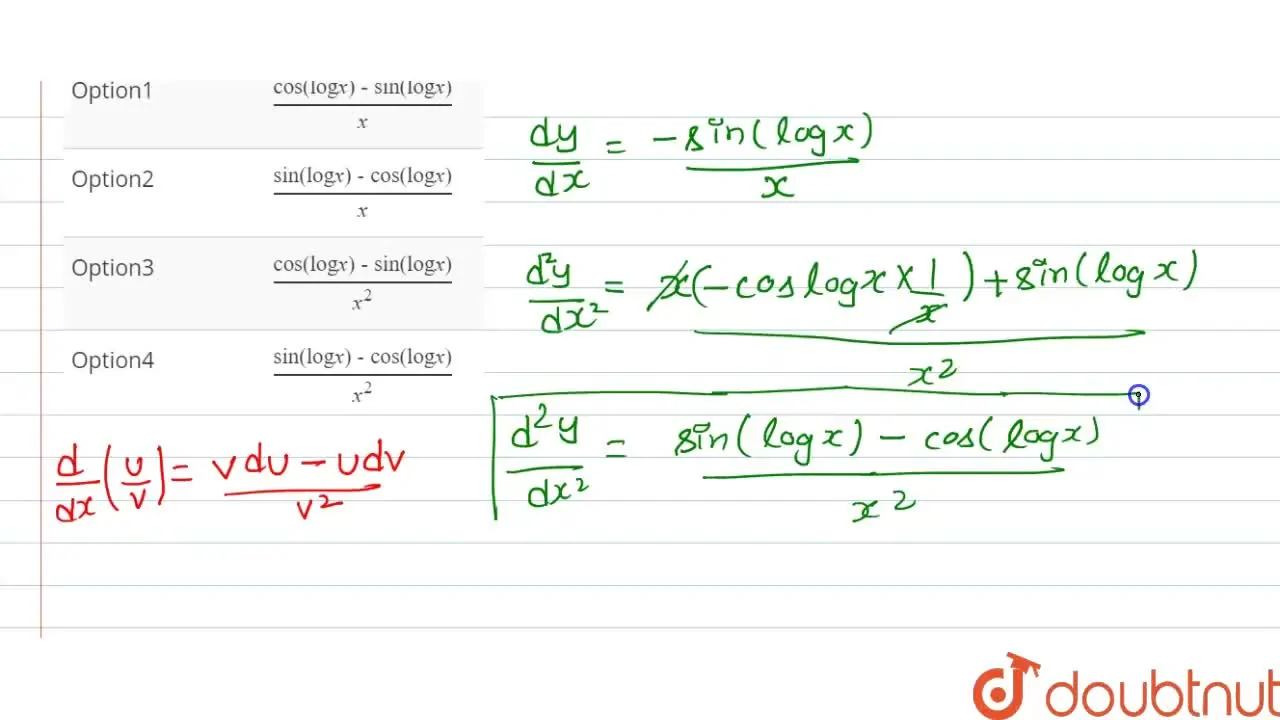 Option1 cos(logx) - sin(logx) / x
Option2 sin(logx) - cos(logx) / x
Option3 cos(logx) - sin(logx) / x²
Option4 sin(logx) - cos(logx) / x²
d/dx (u/v) = vdu - udv / v²
dy/dx = -sin(logx) / x
d²y/dx² = x(-coslogx × 1/x) + sin(logx) / x²
d²y/dx² = sin(logx) - cos(logx) / x²
doubtnut